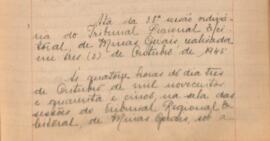 Ata da 38ª sessão ordiná
ria do Tribunal Regional Elei
toral, de Minas Gerais, realizada
em três (3) de Outubro de 1945
Ás quatorze horas do dia tres
de Outubro de mil novecentos
e quarenta e cinco, na sala das
sessões do Tribunal Regional E
leitoral, de Minas Gerais, sob a